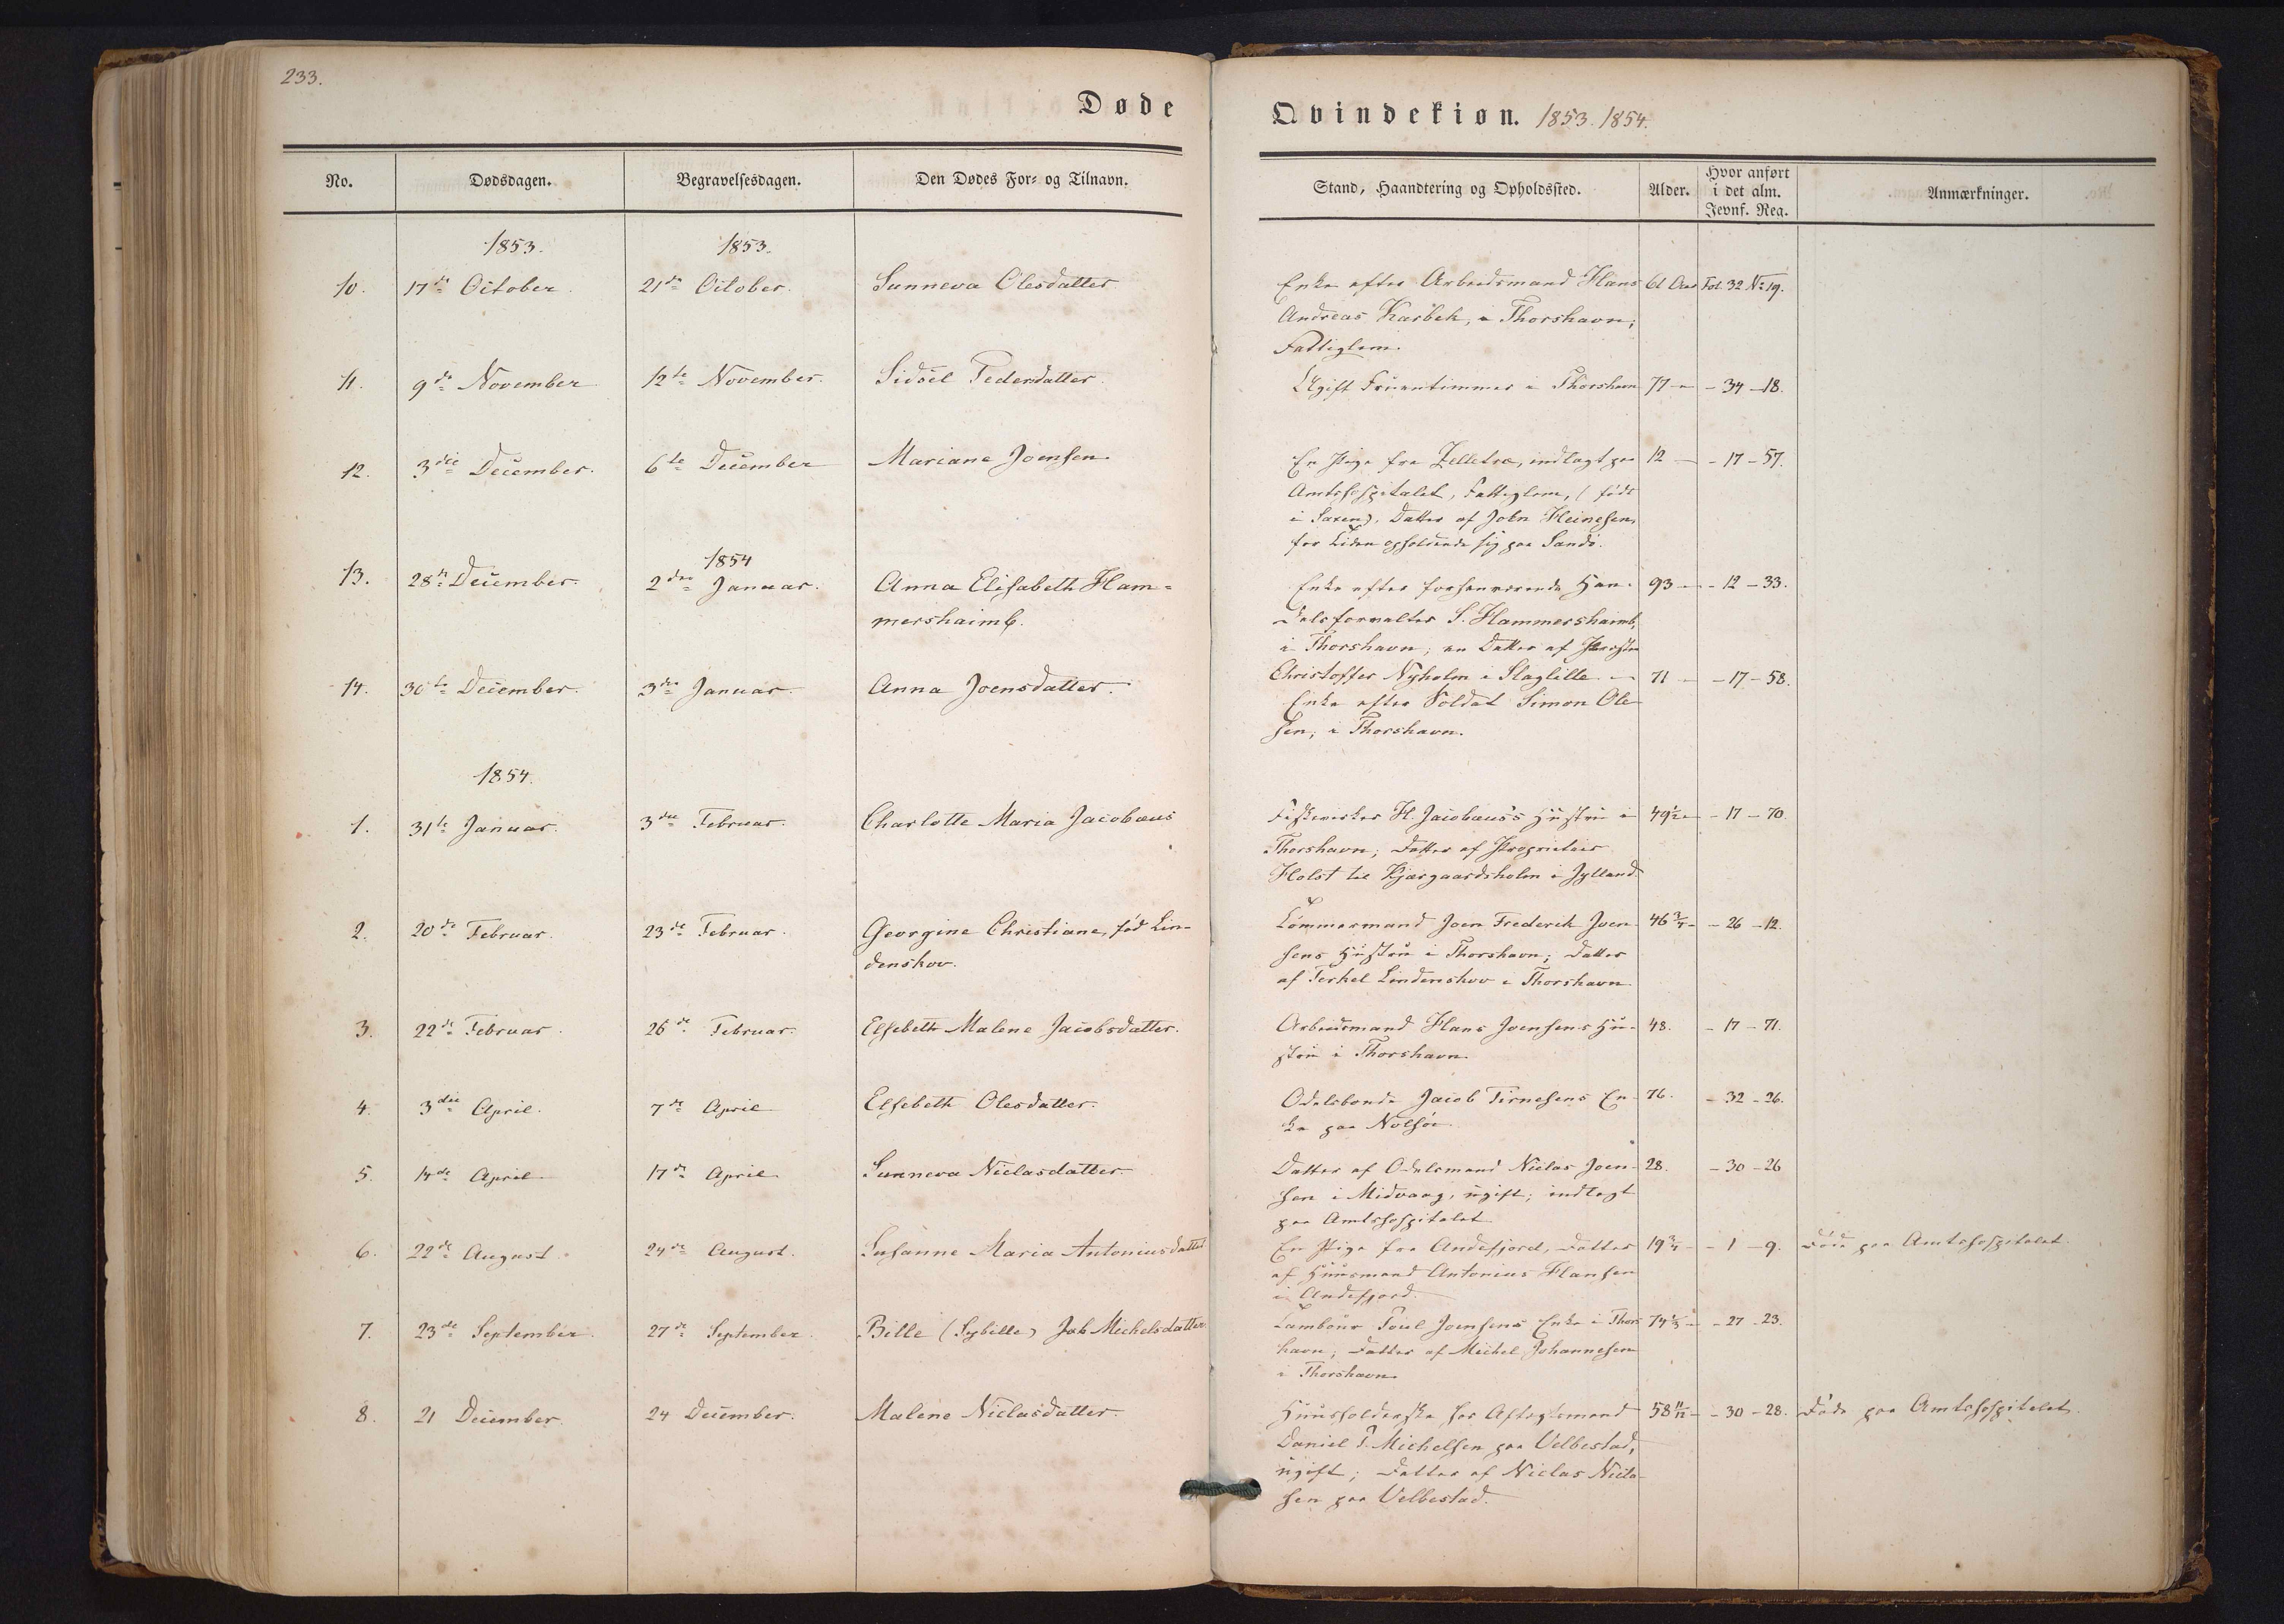 233.
Døde
Qvindekiøn. 1853. 1854.
No. Dødsdagen. Begravelsesdagen. Den Dødes For- og Tilnavn. Stand, Haandtering og Opholdssted. Alder. Hvor anført i det alm. Jevnf. Reg. Anmærkninger.
1853. 1853.
10. 17de October. 21de October. Sunneva Olesdatter Enke efter Arbeidsmand Hans 61 Aar Fol. 32 No 19.
Andreas Karbek, i Thorshavn;
Fattiglem.
11. 9de November 12te November. Sidsel Pedersdatter. Ugift Fruentimmer i Thorshavn 77 - - 34 - 18.
12. 3die December. 6te December Mariane Joensen. En Pige fra Zelletræ, indlagt paa 12 - - 17 - 57.
Amtshospitalet, Fattiglem, (født
i Saxen), Datter af John Heinesen,
for Tiden opholdende sig paa Sandö.
1854
13. 28de December. 2den Januar. Anna Elisabeth Ham= Enke efter forhenværende Han- 93 - - 12 - 33.
mershaimb. delsforvalter S. Hammershaimb,
i Thorshavn; en Datter af Præsten
Christoffer Nyholm i Slaglille
14. 30te December. 3die Januar. Anna Joensdatter. 71 - - 17 - 58.
Enke efter Soldat Simon Ole-
sen, i Thorshavn.
1854.
1. 31te Januar. 3die Februar. Charlotte Maria Jacobæus H. Jacobæus's Hustru i 49½ - - 17 - 70.
Thorshavn; Datter af Proprietair
Holst til Kjærgaardsholm i Jylland.
2. 20de Februar. 23de Februar. Georgine Christiane, fød Lin- Tømmermand Joen Frederik Joen- 46¾ - - 26 - 12.
denskov. sens Hustru i Thorshavn; Datter
af Terkel Lindenskov i Thorshavn.
3. 22de Februar. 26de Februar. Elsebeth Malene Jacobsdatter. Arbeidsmand Hans Joensens Hu- 48. - 17 - 71.
stru i Thorshavn.
4. 3die April. 7de April Elsebeth Olesdatter. Odelsbonde Jacob Tirnesens En- 76. - 32 - 26.
ke paa Nolsöe.
5. 14de April 17de April Sunneva Niclasdatter. Datter af Odelsmand Niclas Joen- 28. - 30 - 26
sen i Midvaag, ugift; indlagt
paa Amtshospitalet
6. 22de August. 24de August. Susanne Maria Antoniusdatter En Pige fra Andefjord, Datter 19¾ - - 1 - 9. Døde paa Amtshospitalet.
af Huusmand Antonius Hansen
i Andefjord.
7. 23de September. 27de September. Bille (Sybille) Joh Michelsdatter. Tambour Poul Joensens Enke i Thors- 74⅓ - - 27 - 23.
havn; Datter af Michel Johannesen
i Thorshavn.
8. 21 December. 24 December. Malene Niclasdatter. Huusholderske hos Aftægtsmand 58 11/12 - - 30 - 28. Døde paa Amtshospitalet.
Daniel P. Michelsen paa Velbestad,
ugift; Datter af Niclas Nicla-
sen paa Velbestad.